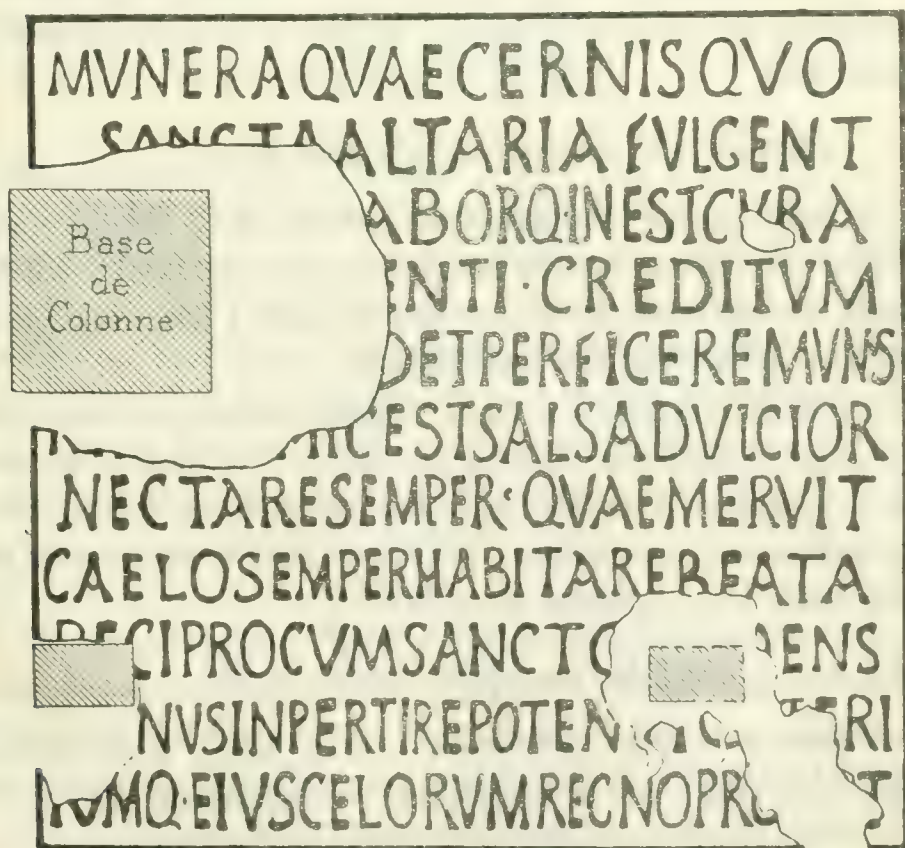 MVNERA QVAE CERNIS QVO
SANCTA ALTARIA FVLGENT
ABORQ·INESTCVRA
ENTI·CREDITVM
DETPERFICEREMVNS
HICESTSALSADVLCIOR
NECTARESEMPER·QVAEMERVIT
CAELOSEMPERHABITAREBEATA
RECIPROCVMSANCTO ENS
NVSINPERTIREPOTEN ERI
TVMQ·EIVSCELORVMREGNOPRO T
Base
de
Colonne